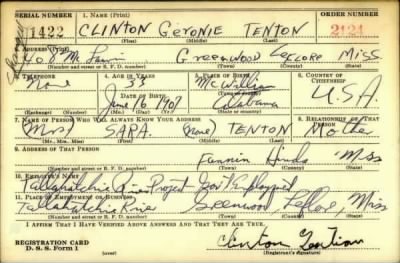 SERIAL NUMBER 1. NAME (Print) ORDER NUMBER
1422 CLINTON GERONIE TENTON 2124
(First) (Middle) (Last)
2. ADDRESS (Print)
408 McLaurin Greenwood Leflore Miss
(Number and street or R. F. D. number) (Town) (County) (State)
3. TELEPHONE 4. AGE IN YEARS 5. PLACE OF BIRTH 6. COUNTRY OF CITIZENSHIP
None 33 McWilliam
DATE OF BIRTH
June 16 1907 Alabama U.S.A.
(Exchange) (Number) (Mo.) (Day) (Yr.) (Town or county) (State or country)
7. NAME OF PERSON WHO WILL ALWAYS KNOW YOUR ADDRESS 8. RELATIONSHIP OF THAT PERSON
(Mrs) SARA. (None) TENTON Mother
(Mr., Mrs., Miss) (First) (Middle) (Last)
9. ADDRESS OF THAT PERSON
Fannin Hinds Miss
(Number and street or R. F. D. number) (Town) (County) (State)
10. EMPLOYER'S NAME
Tallahatchie River Project Gov't Employed
11. PLACE OF EMPLOYMENT OR BUSINESS
Tallahatchie River Greenwood Leflore, Miss
(Number and street or R. F. D. number) (Town) (County) (State)
I AFFIRM THAT I HAVE VERIFIED ABOVE ANSWERS AND THAT THEY ARE TRUE.
REGISTRATION CARD
D. S. S. Form 1 (over) Clinton Tention
(Registrant's signature)